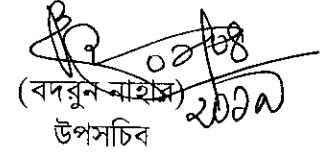 ২০১৯
(বদরুন নাহার)
উপসচিব